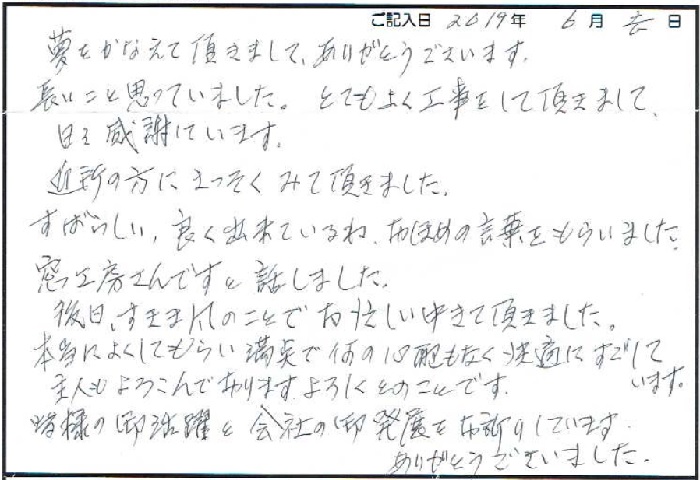 ご記入日 2019年 6月 日
夢をかなえて頂きまして、ありがとうございます。
長いこと思っていました。とてもよく工事をして頂きまして、
日々感謝しています。
近所の方にさっそくみて頂きました。
すばらしい、良く出来ているね、おほめの言葉をもらいました。
窓工房さんですと話しました。
後日、すきま風のことでお忙しい中きて頂きました。
本当によくしてもらい満足で何の心配もなく快適にすごして
います。
主人もよろこんでおりますよろしくとのことです。
皆様の御活躍と会社の御発展をお祈りしています。
ありがとうございました。